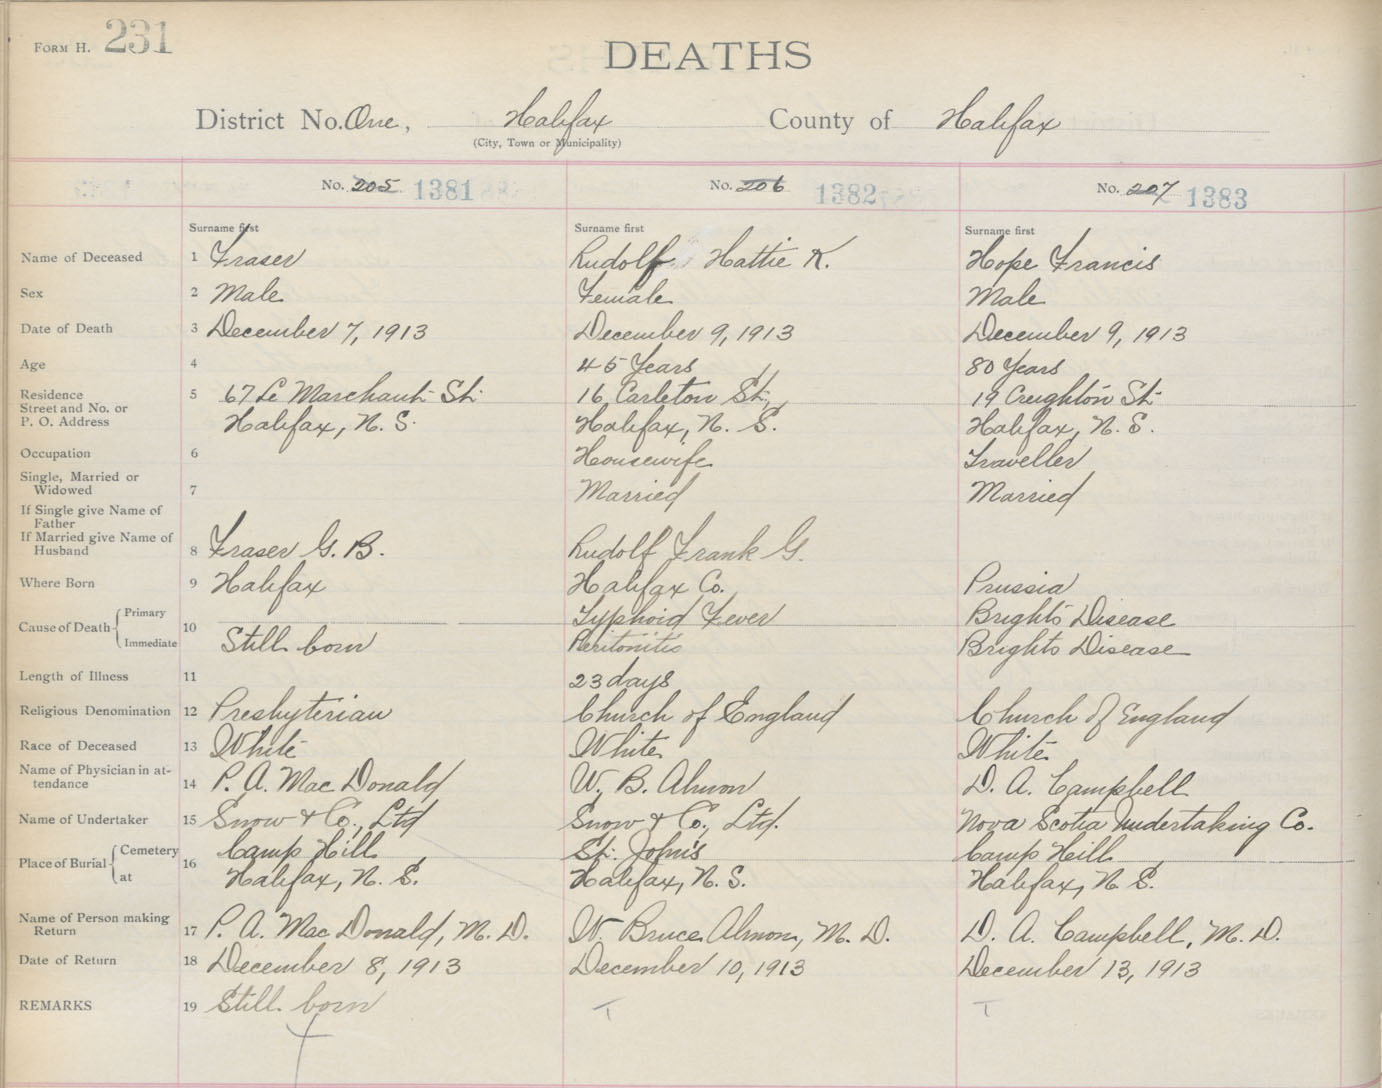 FORM H. 231
DEATHS
District No. One, Halifax County of Halifax
(City, Town or Municipality)
No. 205 1381 No. 206 1382 No. 207 1383
Surname first Surname first Surname first
Name of Deceased 1 Fraser Rudolf Hattie K. Hope Francis
Sex 2 Male Female Male
Date of Death 3 December 7, 1913 December 9, 1913 December 9, 1913
Age 4 45 Years 80 Years
Residence 5 67 Le Marchant St. 16 Carleton St., 19 Creighton St.
Street and No. or
P. O. Address Halifax, N. S. Halifax, N. S. Halifax, N. S.
Occupation 6 Housewife Traveller
Single, Married or
Widowed 7 Married Married
If Single give Name of
Father
If Married give Name of
Husband 8 Fraser G. B. Rudolf Frank G.
Where Born 9 Halifax Halifax Co. Prussia
Cause of Death Primary 10 Typhoid Fever Brights Disease
Immediate Still born Peritonitis Brights Disease
Length of Illness 11 23 days
Religious Denomination 12 Presbyterian Church of England Church of England
Race of Deceased 13 White White White
Name of Physician in at-
tendance 14 P. A. MacDonald W. B. Almon D. A. Campbell
Name of Undertaker 15 Snow & Co., Ltd Snow & Co., Ltd. Nova Scotia Undertaking Co.
Place of Burial Cemetery 16 Camp Hill St. John's Camp Hill
at Halifax, N. S. Halifax, N. S. Halifax, N. S.
Name of Person making
Return 17 P. A. MacDonald, M. D. W. Bruce Almon, M. D. D. A. Campbell, M. D.
Date of Return 18 December 8, 1913 December 10, 1913 December 13, 1913
REMARKS 19 Still born T T